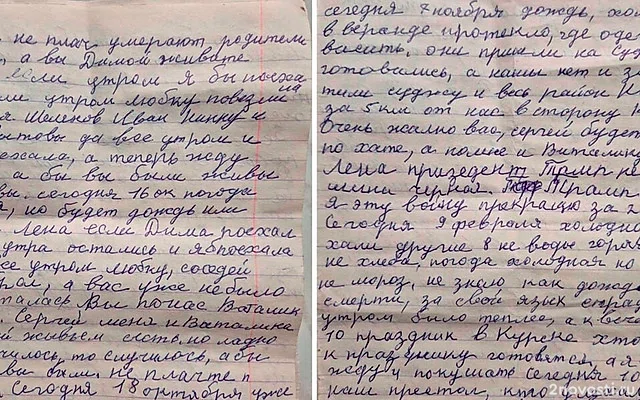 не плач умерают родители
, а вы Димой живате
если утром я бы поеха
ла
утром любку повезли
я Шеленов Иван нинку и
да все утром и
ехала, а теперь жду
, а бы вы были живы
вы. сегодня 16 ок погода
, но будет дождь или
Лена если Дима поехал
утра остались и я б поехала
се утром любку, соседей
рал, а вас уже не было
талась Вы по нас Виталик
Сергей меня и Виталика
й живьем сесть, но ладно
чилось, то случилось, а бы
вы были. не плачте п
Сегодня 18 октября уже
сегодня 7 ноября дождь, хо
в веранде протекло, где оде
висить. они пришли на Суд
готовились, а наши нет и з
тили суджу и весь район и
за 5 км от нас в сторону К
Очень жално вас, сергей будет
по хате, а помне и Виталику
Лена призедент Трмп не
шина черная Трамп
я эту войну прекращю за 2
Сегодня 9 февраля холодно
хали другие 8 не воды горя
не хлеба, погода холодная но
не мороз, не знаю как дожд
смерти, за свой язык страд
утром было теплее, а к вече
10 праздник в Курске хто
к празднику готовятся, а я
жду и покушать сегодня 10
наш престол, кто
2novosti.ru